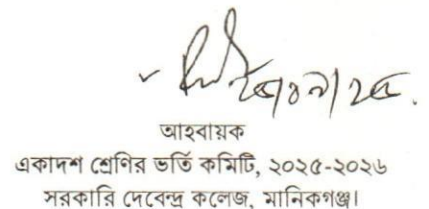 আহবায়ক
একাদশ শ্রেণির ভর্তি কমিটি, ২০২৫-২০২৬
সরকারি দেবেন্দ্র কলেজ, মানিকগঞ্জ।